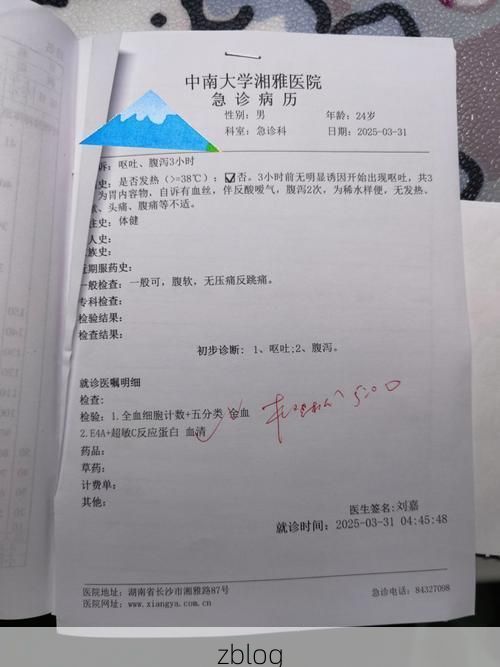 中南大学湘雅医院
急诊病历
性别：男 年龄：24岁
科室：急诊科 日期：2025-03-31
诉：呕吐、腹泻3小时
史：是否发热（>=38℃）：☑否。3小时前无明显诱因开始出现呕吐，共3
为胃内容物，自诉有血丝，伴反酸嗳气，腹泻2次，为稀水样便，无发热、
、头痛、腹痛等不适。
史：体健
人史：
族史：
近期服药史：
一般检查：一般可，腹软，无压痛反跳痛。
专科检查：
检验结果：
检查结果：
初步诊断：1、呕吐;2、腹泻。
就诊医嘱明细
检查：
检验：1.全血细胞计数+五分类 全血
2.E4A+超敏C反应蛋白 血清
药品：
草药：
计费单：
其他：
医生签名:刘嘉
就诊时间：2025-03-31 04:45:48
医院地址：湖南省长沙市湘雅路87号 急诊电话：84327098
医院网址：www.xiangya.com.cn
zblog